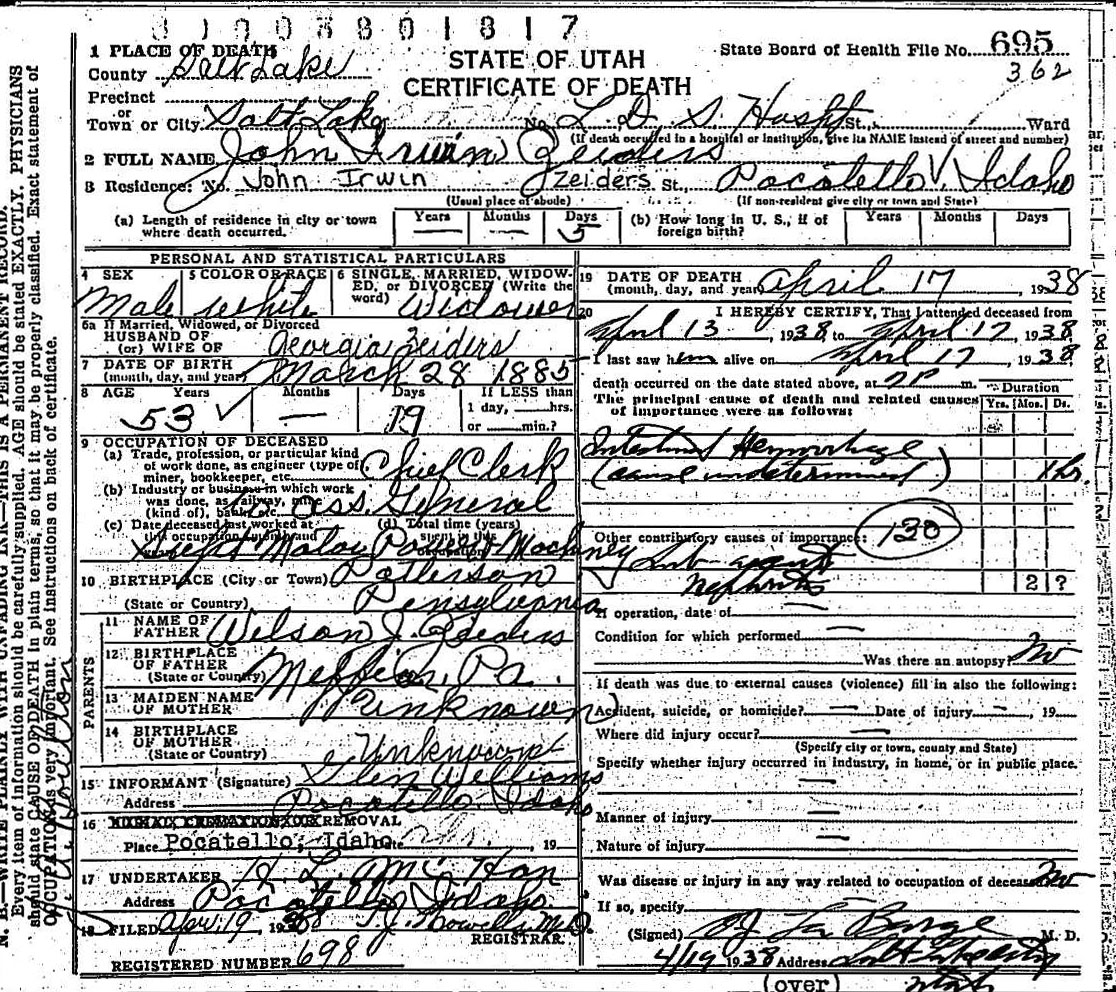 31003801817
1 PLACE OF DEATH
County Salt Lake
STATE OF UTAH
CERTIFICATE OF DEATH
State Board of Health File No. 695
362
Precinct
or
Town or City Salt Lake No. L. D. S. Hosp St., Ward
(If death occurred in a hospital or institution, give its NAME instead of street and number)
2 FULL NAME John Irwin Zeiders
3 Residence: No. John Irwin Zeiders St., Pocatello, Idaho
(Usual place of abode) (If non-resident give city or town and State)
(a) Length of residence in city or town where death occurred. Years — Months — Days 5
(b) How long in U. S., if of foreign birth? Years Months Days
PERSONAL AND STATISTICAL PARTICULARS
4 SEX Male
5 COLOR OR RACE White
6 SINGLE, MARRIED, WIDOWED, OR DIVORCED (Write the word) Widower
6a If Married, Widowed, or Divorced
HUSBAND OF
(or) WIFE OF Georgia Zeiders
7 DATE OF BIRTH
(month, day, and year) March 28 1885
8 AGE Years 53 Months — Days 19 If LESS than 1 day, hrs. or min.?
9 OCCUPATION OF DECEASED
(a) Trade, profession, or particular kind of work done, as engineer (type of) miner, bookkeeper, etc. Chief Clerk
(b) Industry or business in which work was done, as railway, mine (kind of), bank, etc. General
(c) Date deceased last worked at this occupation
(d) Total time (years) spent in this
Supt Motor Power & Machinery
10 BIRTHPLACE (City or Town) Patterson
(State or Country) Pensylvania
PARENTS
11 NAME OF FATHER Wilson J. Zeiders
12 BIRTHPLACE OF FATHER (State or County) Pa.
13 MAIDEN NAME OF MOTHER Unknown
14 BIRTHPLACE OF MOTHER (State or County) Unknown
15 INFORMANT (Signature) Glen Williams
Address Pocatello, Idaho
16 BURIAL, CREMATION, OR REMOVAL
Place Pocatello, Idaho Date , 19
17 UNDERTAKER H. L. Mc Han
Address Pocatello Idaho
18 FILED Apr. 19 1938 T. J. Howells, M.D.
REGISTRAR.
REGISTERED NUMBER 698
19 DATE OF DEATH
(month, day, and year) April 17 , 1938
20 I HEREBY CERTIFY, That I attended deceased from
April 13 , 1938 to April 17 , 1938
I last saw him alive on April 17 , 1938
death occurred on the date stated above, at 2P m.
The principal cause of death and related causes of importance were as follows:
Duration
Yrs. Mos. Ds.
Intestinal Hemorrhage
(cause undetermined) 1 hr.
Other contributory causes of importance: 130
Sub-acute
Nephritis 2 ?
If operation, date of —
Condition for which performed —
Was there an autopsy? No
If death was due to external causes (violence) fill in also the following:
Accident, suicide, or homicide? — Date of injury — , 19
Where did injury occur? —
(Specify city or town, county and State)
Specify whether injury occurred in industry, in home, or in public place.
—
Manner of injury —
Nature of injury —
Was disease or injury in any way related to occupation of deceased No
If so, specify
(Signed) O J La Barge M. D.
4/19 1938 Address Salt Lake City
Utah
(over)
N. B.—WRITE PLAINLY WITH UNFADING INK—THIS IS A PERMANENT RECORD.
Every item of information should be carefully supplied. AGE should be stated EXACTLY. PHYSICIANS
should state CAUSE OF DEATH in plain terms, so that it may be properly classified. Exact statement of
OCCUPATION is very important. See instructions on back of certificate.